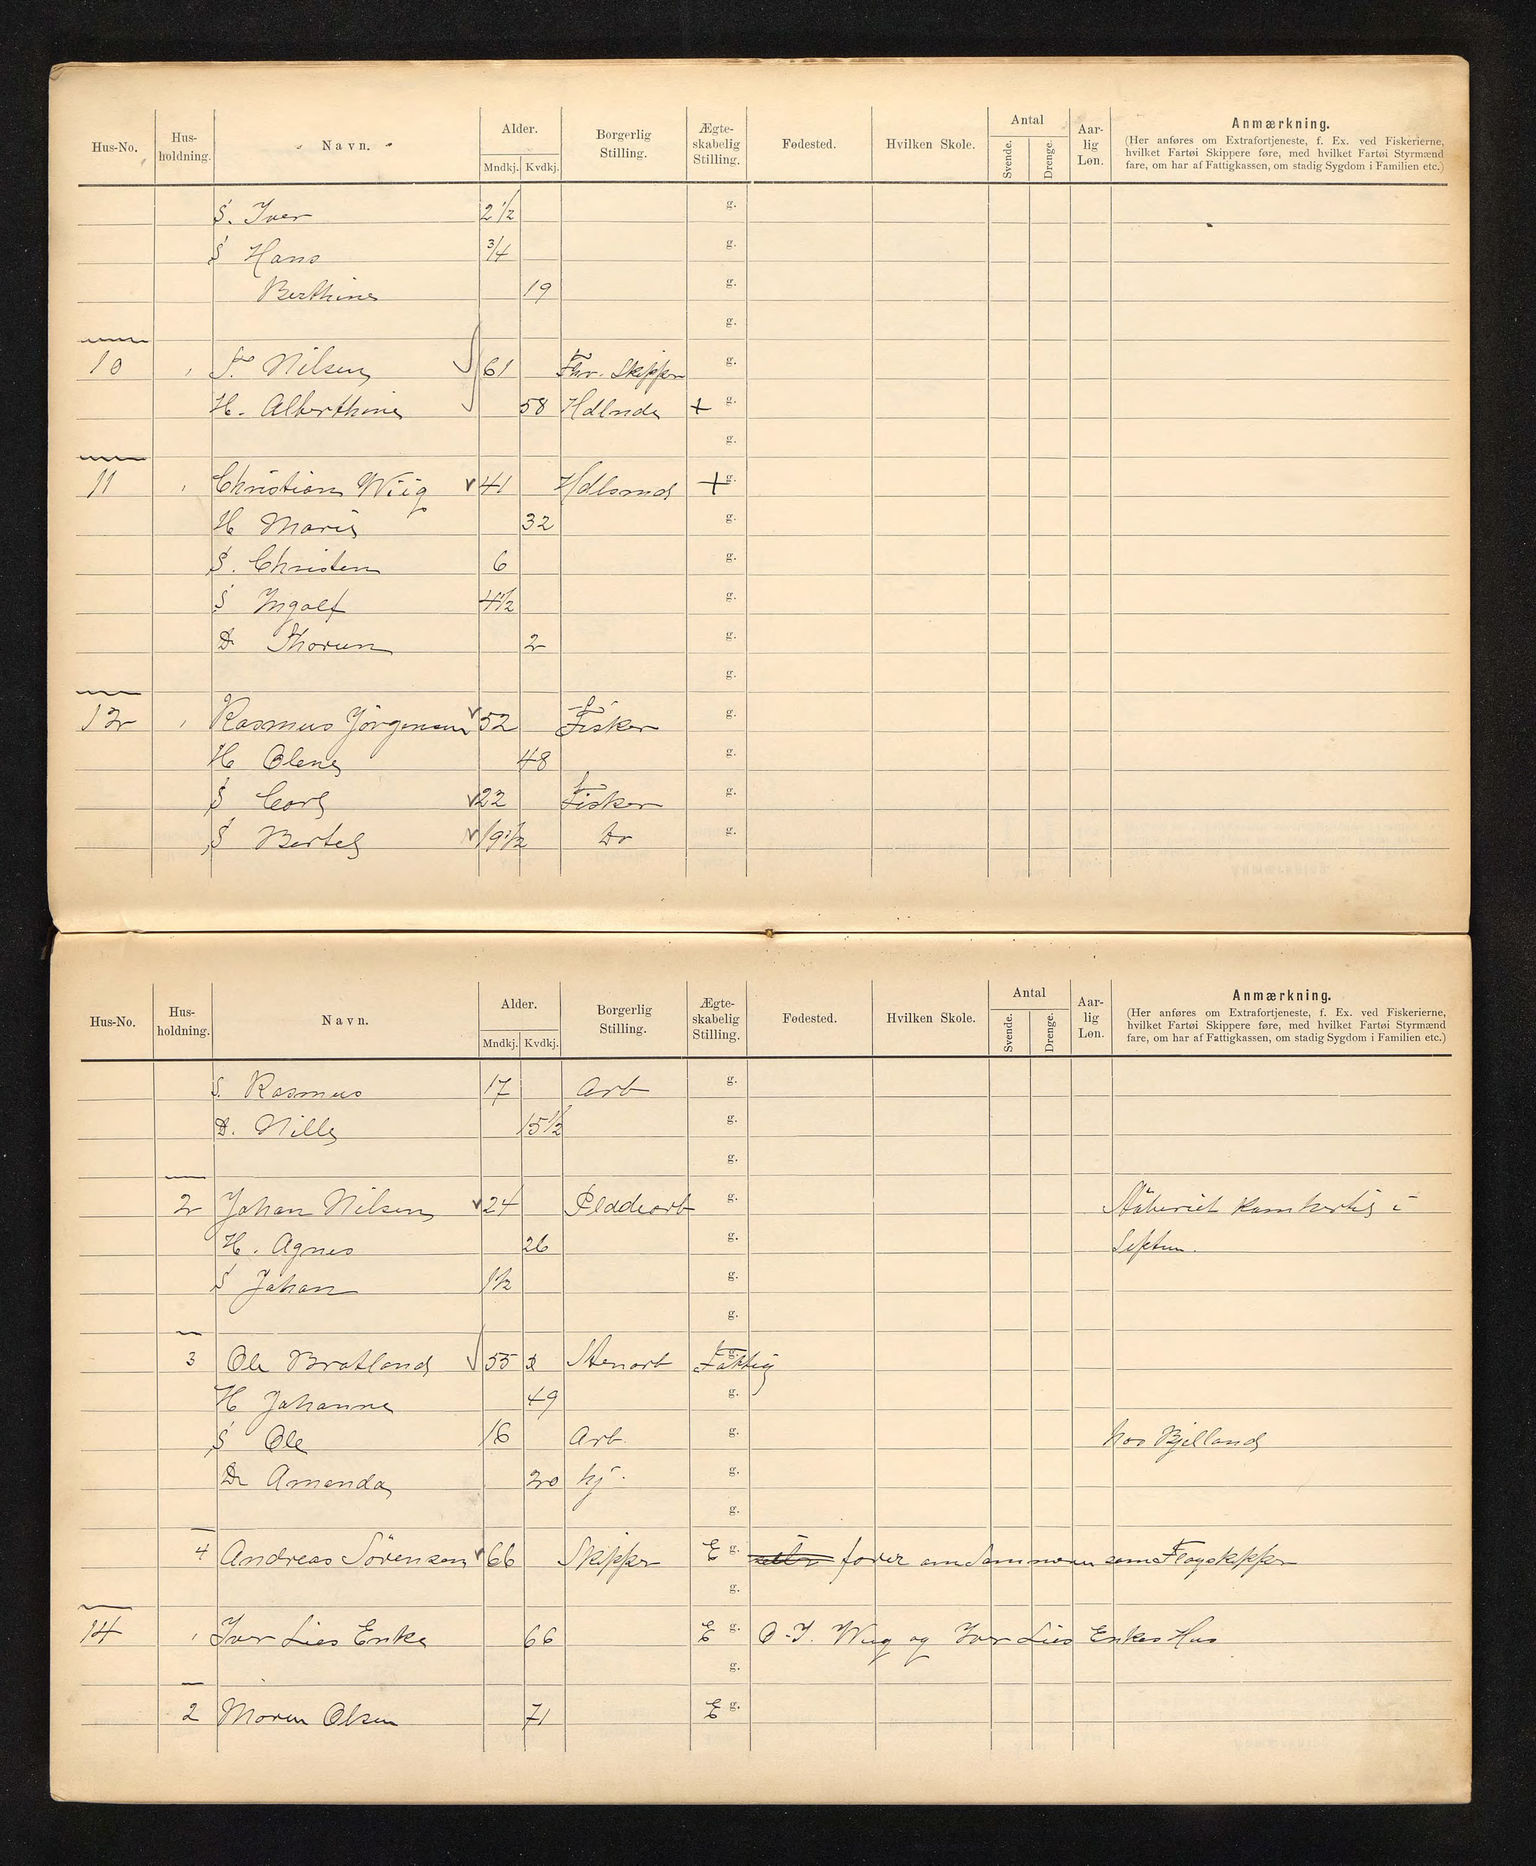 Hus-No. Hus-holdning. Navn. Alder. Mndkj. Kvdkj. Borgerlig Stilling. Ægte-skabelig Stilling. Fødested. Hvilken Skole. Antal Svende. Drenge. Aar-lig Løn. Anmærkning.
(Her anføres om Extrafortjeneste, f. Ex. ved Fiskerierne,
hvilket Fartøi Skippere føre, med hvilket Fartøi Styrmænd
fare, om har af Fattigkassen, om stadig Sygdom i Familien etc.)
S. Iver 2 1/2 g.
S Hans 3/4 g.
Berthine 19 g.
g.
10 Nilsen 61 Fhv. Skipper g.
H. Alberthine 58 Hdlnde + g.
g.
11 Christian Wiig 41 Hdlsmd + g.
H Marie 32 g.
S. Christen 6 g.
S Ingolf 4 1/2 g.
D Thorun 2 g.
g.
12 Rasmus Jørgensen 52 Fisker g.
H Olene 48 g.
S Carl 22 Fisker g.
S Bertel 19 1/2 Do g.
Hus-No. Hus-holdning. Navn. Alder. Mndkj. Kvdkj. Borgerlig Stilling. Ægte-skabelig Stilling. Fødested. Hvilken Skole. Antal Svende. Drenge. Aar-lig Løn. Anmærkning.
(Her anføres om Extrafortjeneste, f. Ex. ved Fiskerierne,
hvilket Fartøi Skippere føre, med hvilket Fartøi Styrmænd
fare, om har af Fattigkassen, om stadig Sygdom i Familien etc.)
S. Rasmus 17 Arb g.
D. Nille 15 1/2 g.
g.
2 Johan Nilsen 24 Pladearb g. Støberiet kom hertil i
H. Agnes 26 g. Septem.
S Johan 1 1/2 g.
g.
3 Ole Bratland 55 Stenarb Fattig g.
H Johanne 49 g.
S Ole 16 Arb. g. hos Bjelland
D Amanda 20 hj. g.
g.
4 Andreas Sørensen 66 Skipper E g. farer som Flagskipper
g.
14 Iver Lies Enke 66 E g. O. I. Wiig og Iver Lies Enkes Hus
g.
2 Maren Olsen 71 E g.